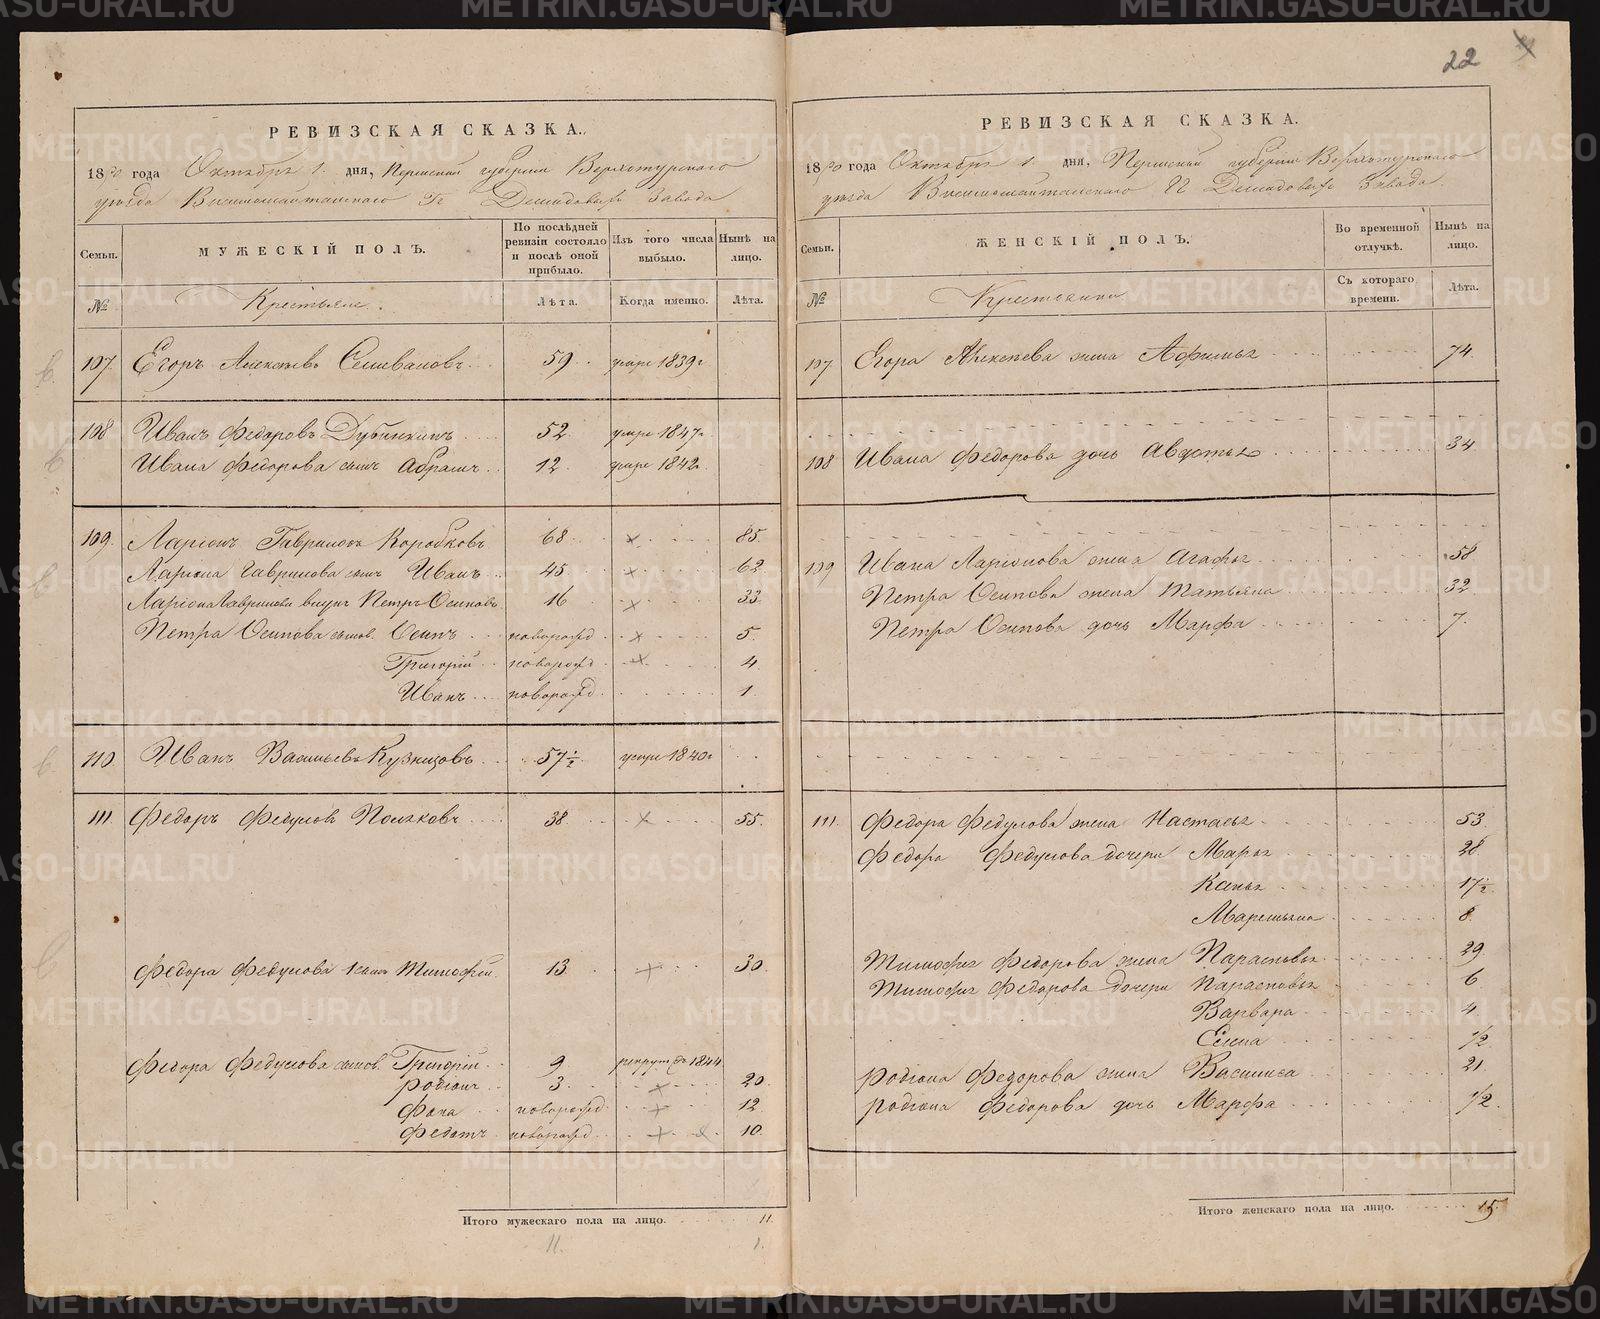 22
РЕВИЗСКАЯ СКАЗКА.
1850 года Октября 1. дня, Пермской губернии Верхотурского
уезда Висимошайтанского Гг Демидовых Завода
Семьи. МУЖЕСКІЙ ПОЛЪ. По послѣдней ревизіи состояло и послѣ оной прибыло. Изъ того числа выбыло. Нынѣ на лицо.
№ Крестьяне. Лѣта. Когда именно. Лѣта.
107. Егоръ Алексѣевъ Селивановъ 59 умре 1839г
108 Иванъ Федоровъ Дубинкинъ 52 умре 1847г
Ивана Федорова сынъ Абрамъ 12 умре 1842г
109. Ларіонъ Гавриловъ Коробковъ 68 × 85.
Ларіона Гаврилова сынъ Иванъ 45 × 62
Ларіона Гаврилова внукъ Петръ Осиповъ 16 × 33
Петра Осипова сынов. Осипъ новорожд × 5.
Григорій новорожд × 4
Иванъ новорожд 1
110. Иванъ Васильевъ Кузнецовъ 57 1/2 умре 1840г
111 Федоръ Федуловъ Поляковъ 38 × 55.
Федора Федулова 1 сынъ Тимофей 13 × 30
Федора Федулова сынов. Григорій 9 рекрут въ 1844
Родіонъ 3 × 20
Фока новорожд × 12
Федотъ новорожд × 10
Итого мужескаго пола на лицо. 11.
11. 1.
РЕВИЗСКАЯ СКАЗКА.
1850 года Октября 1. дня, Пермской губернии Верхотурского
уезда Висимошайтанского Гг Демидовыхъ Завода.
Семьи. ЖЕНСКІЙ ПОЛЪ. Во временной отлучкѣ. Нынѣ на лицо.
№ Крестьянки Съ котораго времени. Лѣта.
107 Егора Алексѣева жена Афимья 74.
108 Ивана Федорова дочь Авдотья 34
109 Ивана Ларіонова жена Агафья 58
Петра Осипова жена Татьяна 32
Петра Осипова дочь Марфа 7.
111. Федора Федулова жена Настасья 53
Федора Федулова дочери Марья 28
Ксенья 17 1/2
Маремьяна 8
Тимофея Федорова жена Парасковья 29
Тимофея Федорова дочери Парасковья 6
Варвара 4
Елена 1/2
Родіона Федорова жена Василиса 21
Родіона Федорова дочь Марфа 1/2
Итого женскаго пола на лицо. 15
METRIKI.GASO-URAL.RU